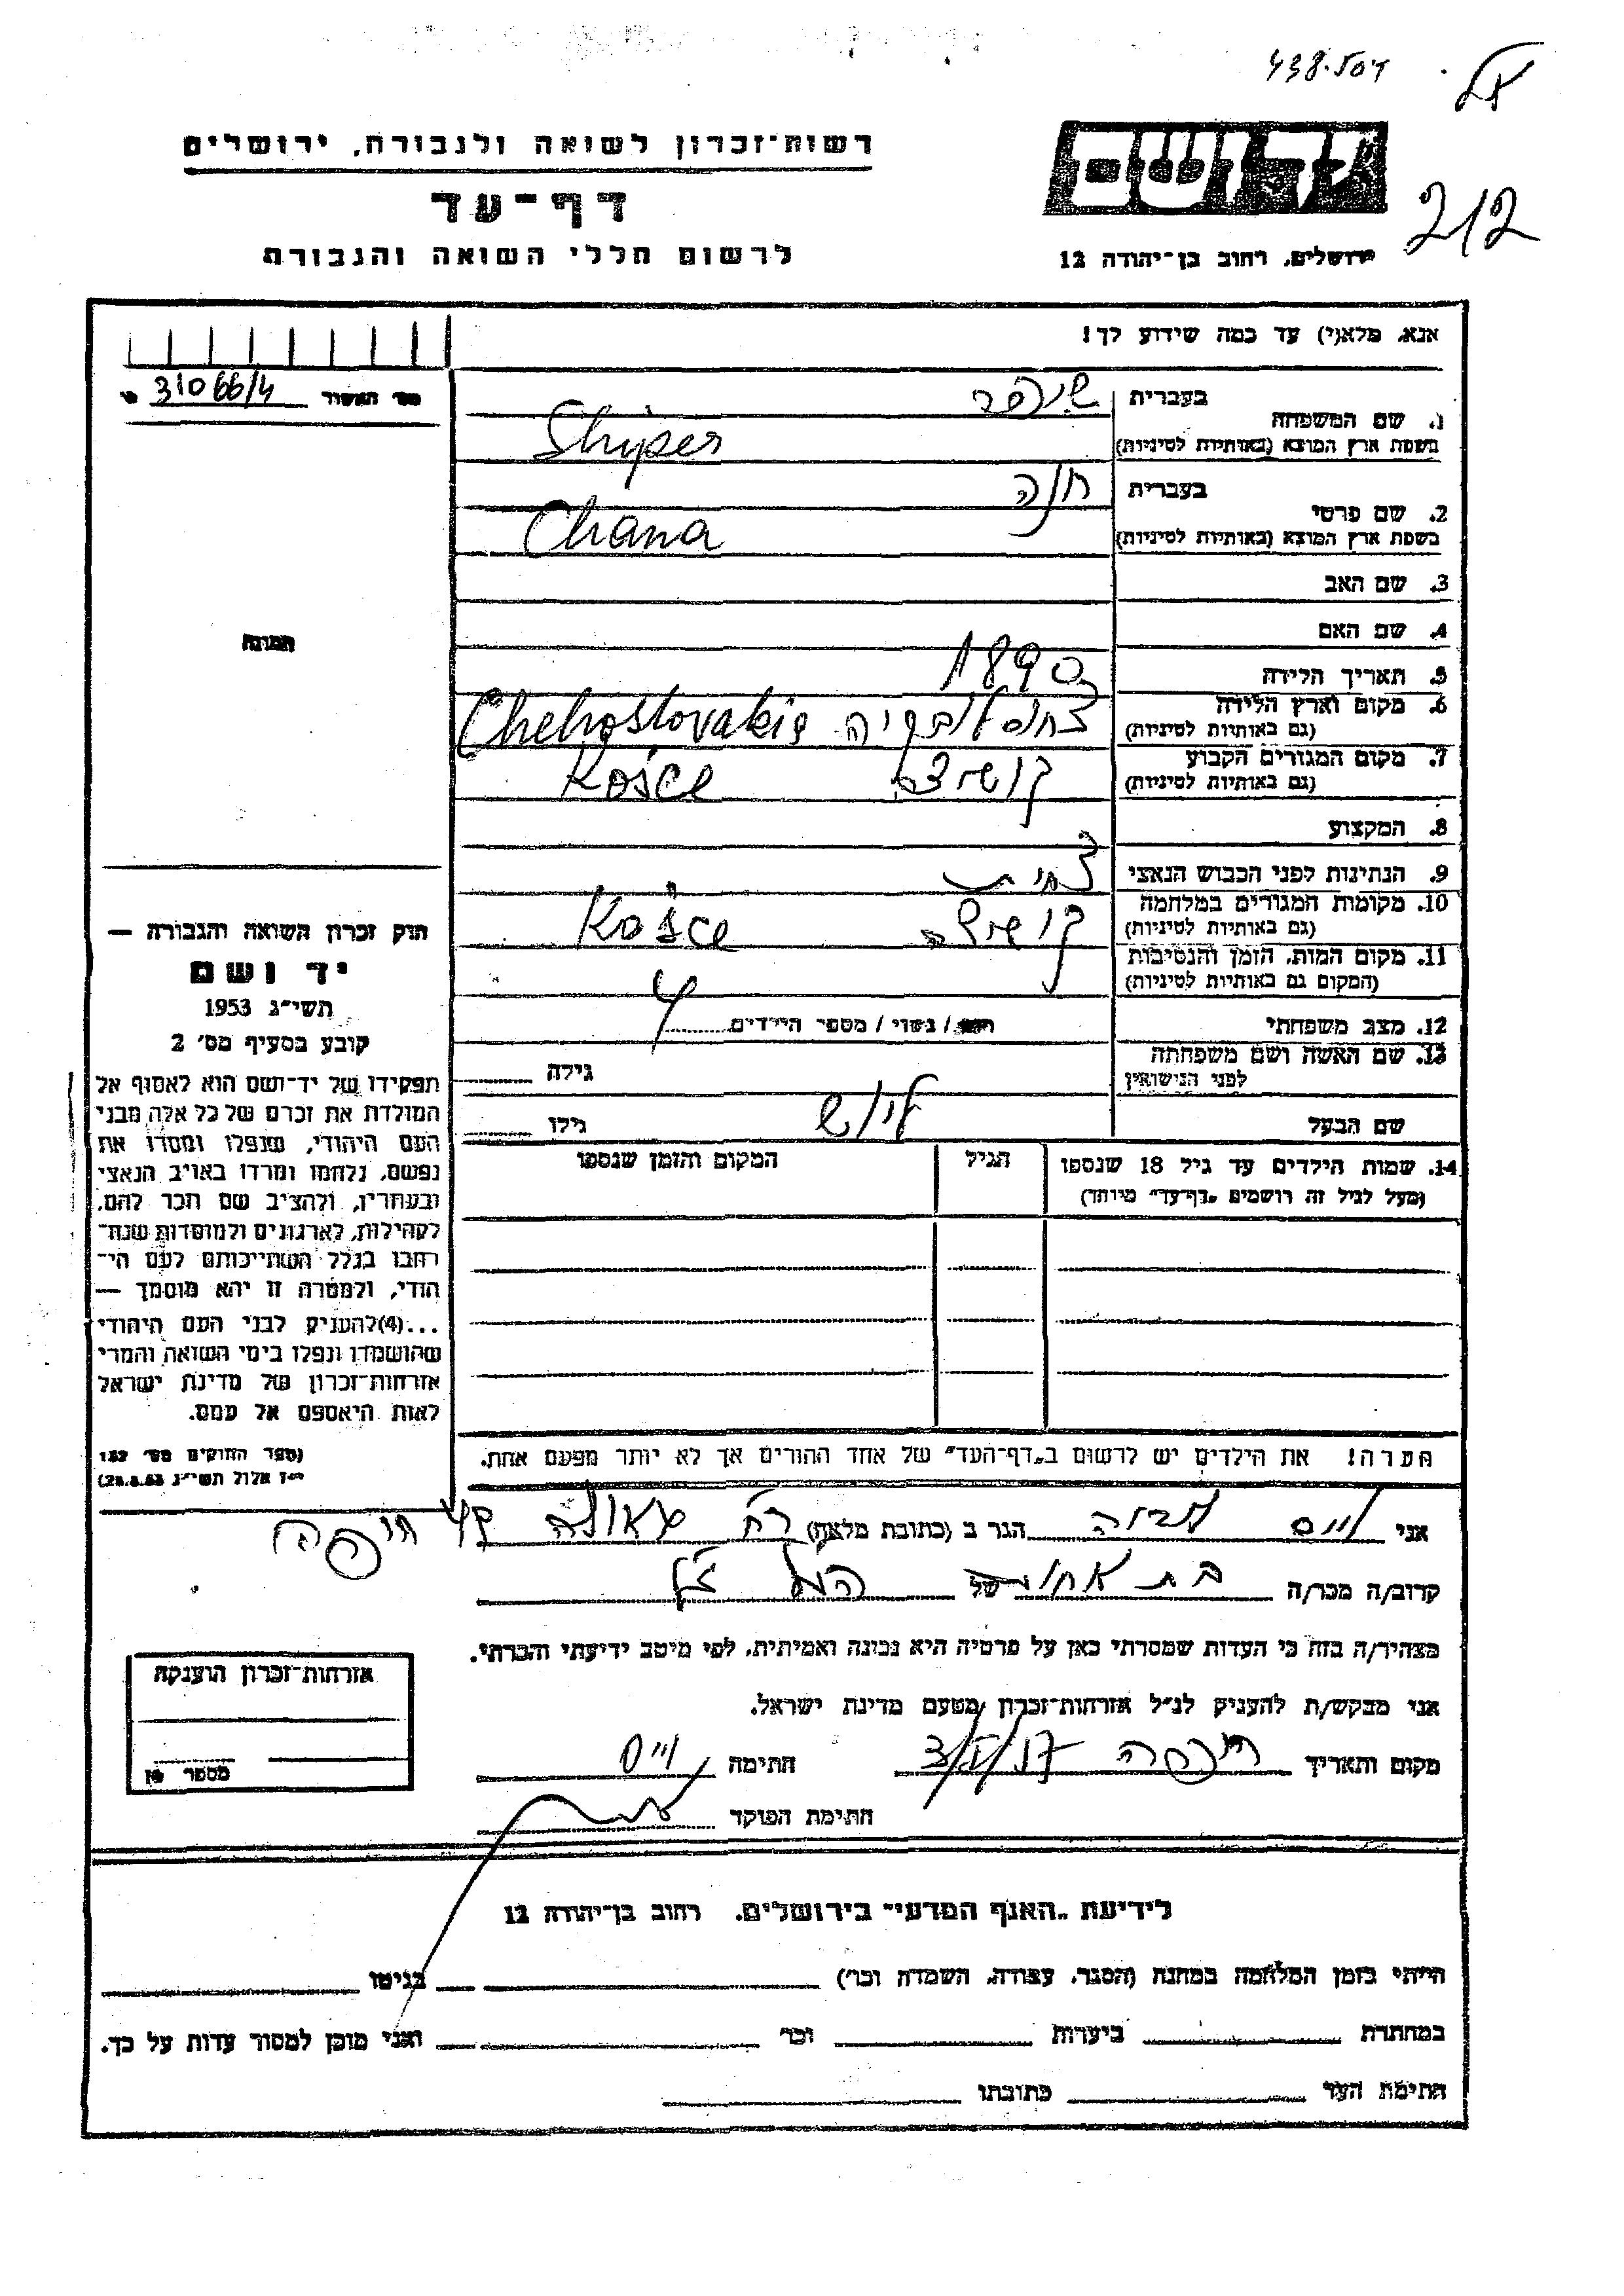 דסל.438
212
יד ושם
רשות־זכרון לשואה ולגבורה, ירושלים
דף־עד
לרשום חללי השואה והגבורה
ירושלים, רחוב בן־יהודה 12
אנא, מלא(י) עד כמה שידוע לך!
מס׳ האשור 31066/4
1. שם המשפחה
בעברית שיפר
בשפת ארץ המוצא (באותיות לטיניות) Shiper
2. שם פרטי
בעברית חנה
בשפת ארץ המוצא (באותיות לטיניות) Chana
3. שם האב
4. שם האם
5. תאריך הלידה 1890
6. מקום וארץ הלידה
(גם באותיות לטיניות) צ'כוסלובקיה Chehoslovakia
7. מקום המגורים הקבוע
(גם באותיות לטיניות) קושיצה Kośce
8. המקצוע
9. הנתינות לפני הכבוש הנאצי צ'כית
10. מקומות המגורים במלחמה
(גם באותיות לטיניות) קושיצה Kośce
11. מקום המות, הזמן והנסיבות
(המקום גם באותיות לטיניות)
12. מצב משפחתי רווק / נשוי / מספר הילדים 4
13. שם האשה ושם משפחתה
לפני הנישואין גילה
שם הבעל ליוש גילו
14. שמות הילדים עד גיל 18 שנספו
(מעל לגיל זה רושמים „דף־עד״ מיוחד)
הגיל
המקום והזמן שנספו
הערה! את הילדים יש לרשום ב„דף־העד״ של אחד ההורים אך לא יותר מפעם אחת.
תמונה
חוק זכרון השואה והגבורה —
יד ושם
תשי״ג 1953
קובע בסעיף מס׳ 2
תפקידו של יד־ושם הוא לאסוף אל
המולדת את זכרם של כל אלה מבני
העם היהודי, שנפלו ומסרו את
נפשם, נלחמו ומרדו באויב הנאצי
ובעוזריו, ולהציב שם וזכר להם,
לקהילות, לארגונים ולמוסדות שנח־
רבו בגלל השתייכותם לעם הי־
הודי, ולמטרה זו יהא מוסמך —
...(4)להעניק לבני העם היהודי
שהושמדו ונפלו בימי השואה והמרי
אזרחות־זכרון של מדינת ישראל
לאות היאספם אל עמם.
(ספר החוקים מס׳ 132
י״ז אלול תשי״ג 28.8.53)
אני וייס הגר ב (כתובת מלאה) רח׳ חיפה
קרוב/ה מכר/ה בת אחות של
מצהיר/ה בזה כי העדות שמסרתי כאן על פרטיה היא נכונה ואמיתית, לפי מיטב ידיעתי והכרתי.
אני מבקש/ת להעניק לנ״ל אזרחות־זכרון מטעם מדינת ישראל.
מקום ותאריך חיפה חתימה וייס
חתימת הפוקד
אזרחות־זכרון הוענקה
מספר
לידיעת „האגף המדעי״ בירושלים, רחוב בן־יהודה 12
הייתי בזמן המלחמה במחנה (הסגר, עבודה, השמדה וכו׳) בגיטו
במחתרת ביערות וכו׳ ואני מוכן למסור עדות על כך.
חתימת העד כתובתו